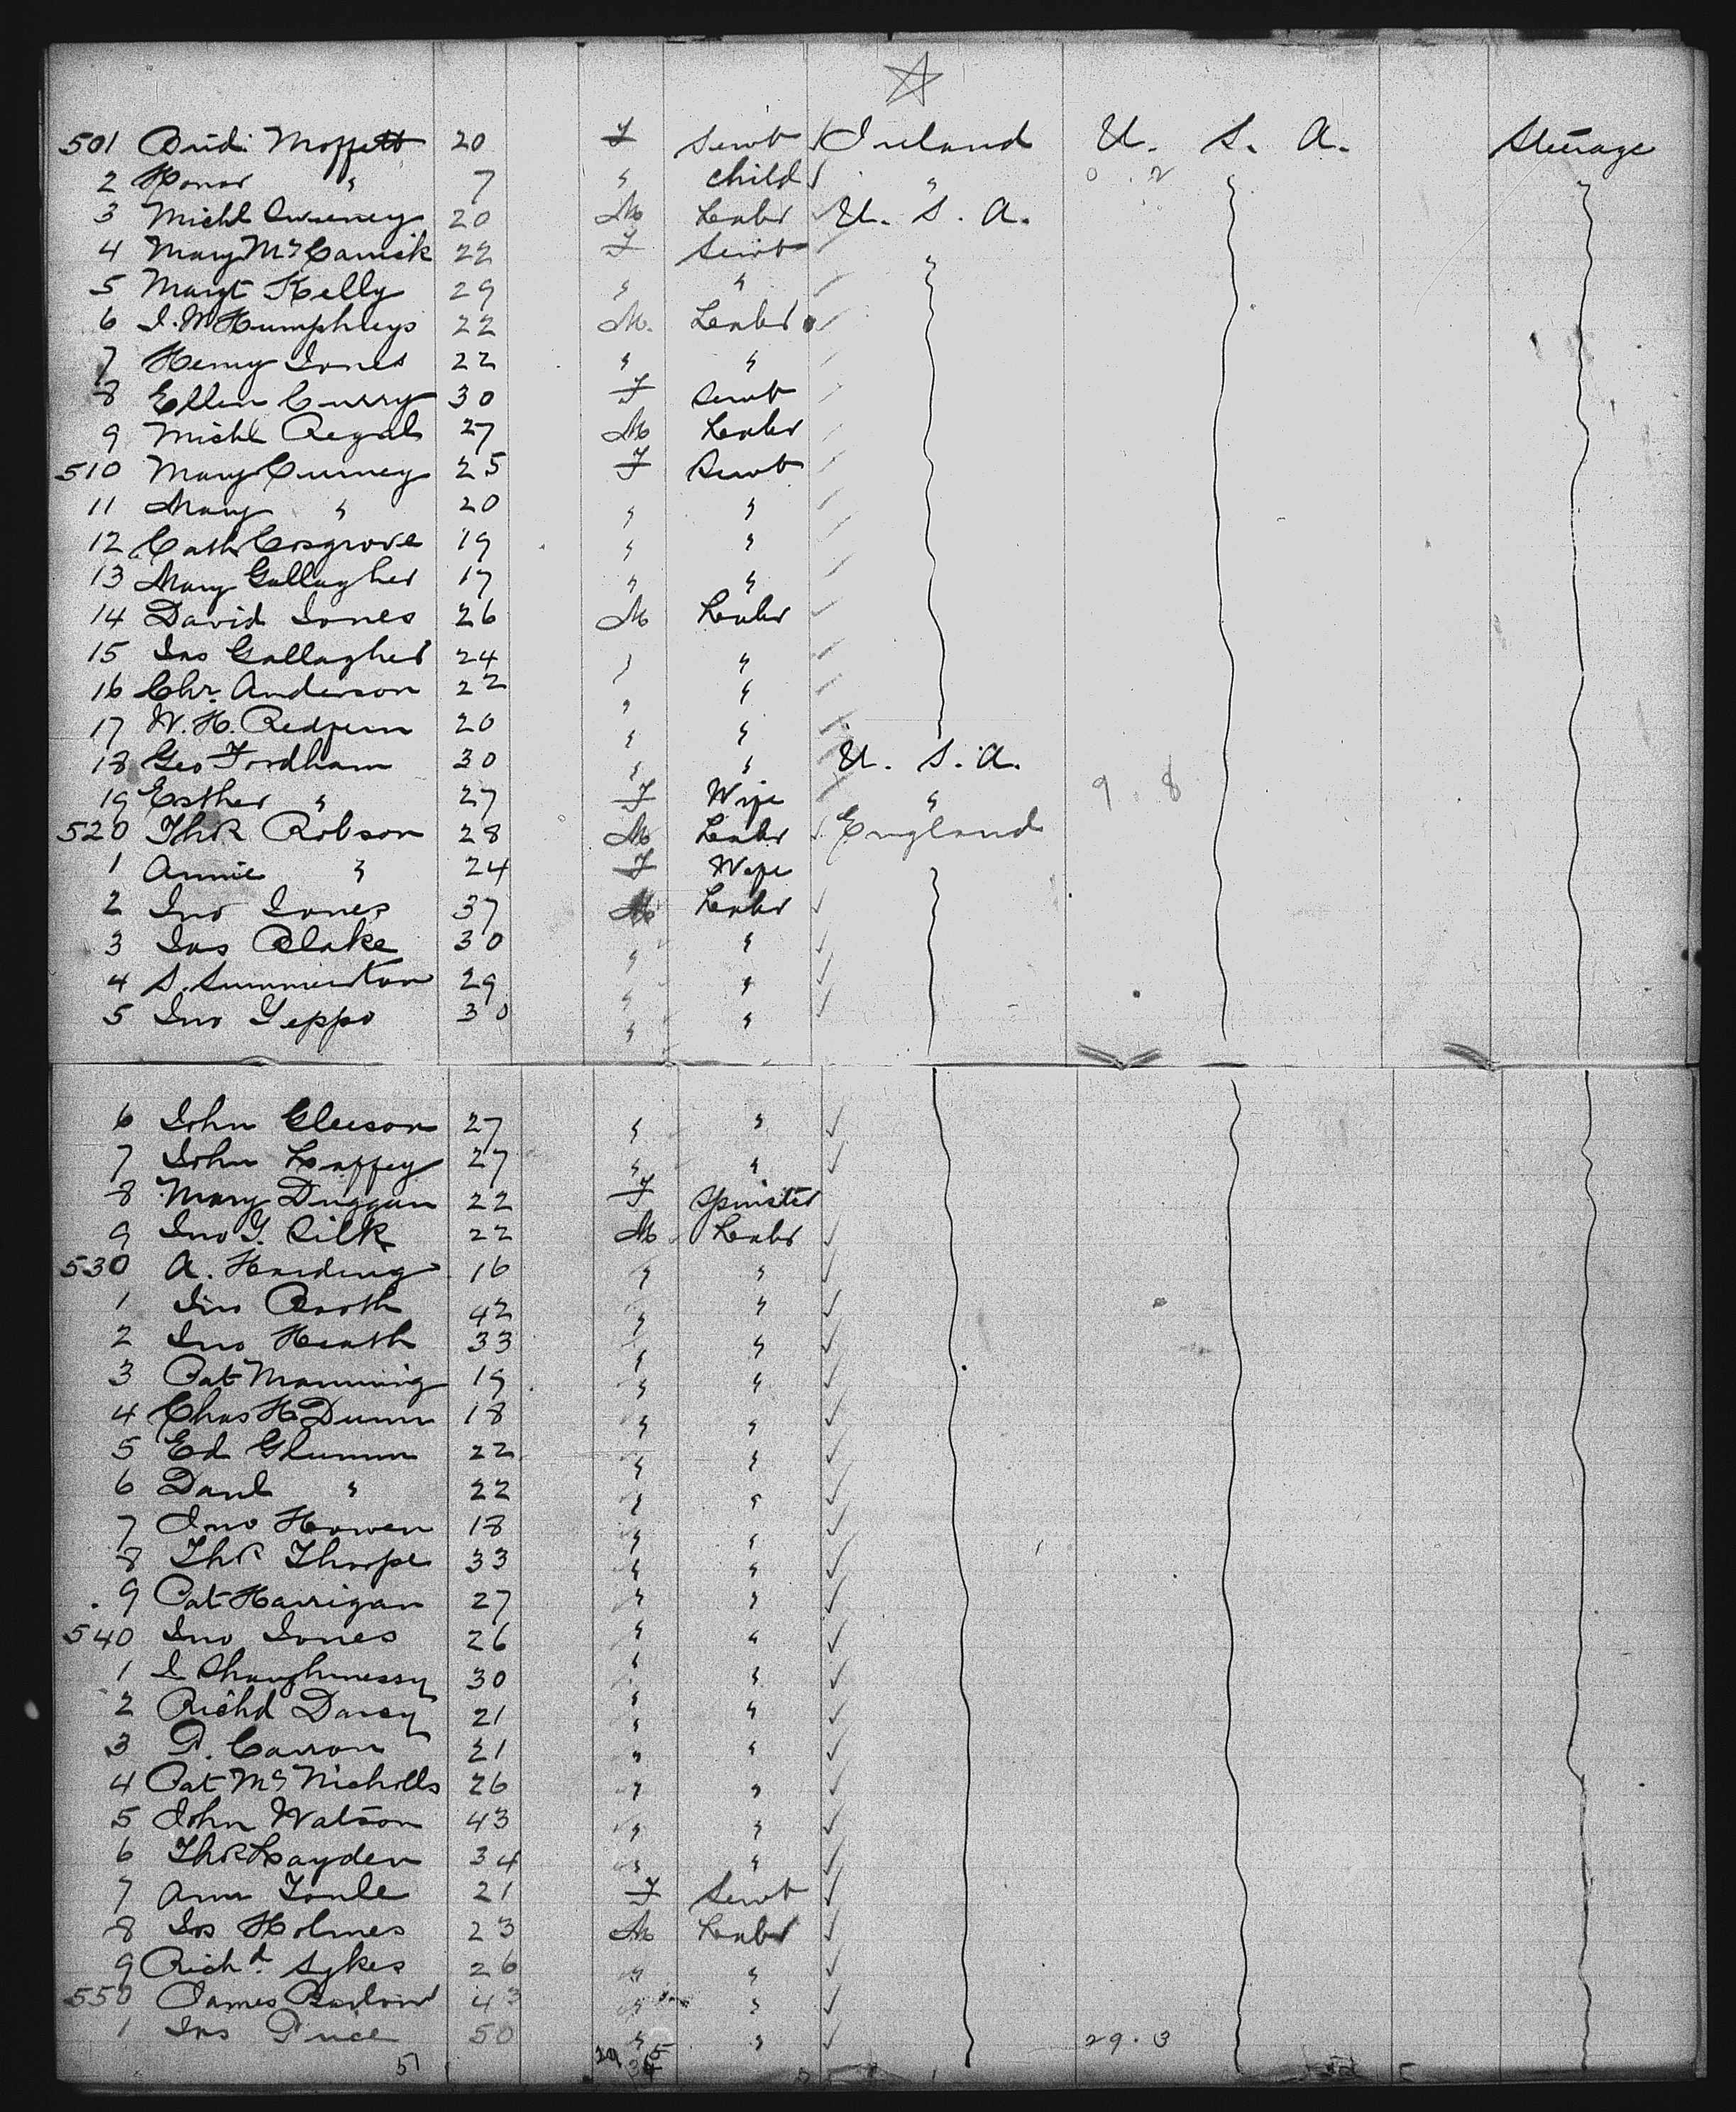 501 Brid. Moffett 20 F Servt Ireland U. S. A. Steerage
2 Honor " 7 " child "
3 Michl Sweeney 20 M Labr U. S. A.
4 Mary McCarrick 22 F Servt "
5 Margt Kelly 29 " "
6 J. W. Humphreys 22 M. Labr
7 Henry Jones 22 " "
8 Ellen Curry 30 F Servt
9 Michl Regal 27 M Labr
510 Mary Curney 25 F Servt
11 Mary " 20 " "
12 Cath Cosgrove 19 " "
13 Mary Gallagher 17 " "
14 David Jones 26 M Labr
15 Jas Gallagher 24 " "
16 Chr. Anderson 22 " "
17 W. H. Redfern 20 " "
18 Geo Fordham 30 " " U. S. A.
19 Esther " 27 F Wife " 9 . 8
520 Thos Robson 28 M Labr England
1 Annie " 24 F Wife
2 Jno Jones 37 M Labr
3 Jas Blake 30 " "
4 S. Summerton 29 " "
5 Jno Yeppo 30 " "
6 John Gleeson 27 " "
7 John Laffey 27 " "
8 Mary Duggan 22 F Spinster
9 Jno Y. Silk 22 M Labr
530 A. Harding 16 " "
1 Jno Booth 42 " "
2 Jno Heath 33 " "
3 Pat Manning 19 " "
4 Chas H Dunn 18 " "
5 Ed Glumm 22 " "
6 Danl " 22 " "
7 Jno Howen 18 " "
8 Thos Thorpe 33 " "
9 Pat Harrigan 27 " "
540 Jno Jones 26 " "
1 J Shaughnessy 30 " "
2 Richd Darcy 21 " "
3 P. Carron 21 " "
4 Pat McNicholls 26 " "
5 John Watson 43 " "
6 Thos Hayden 34 " "
7 Ann Towle 21 F Servt
8 Jos Holmes 23 M Labr
9 Richd. Sykes 26 " "
550 James Barlow 43 " "
1 Jas Price 50 " " 29 . 3
51